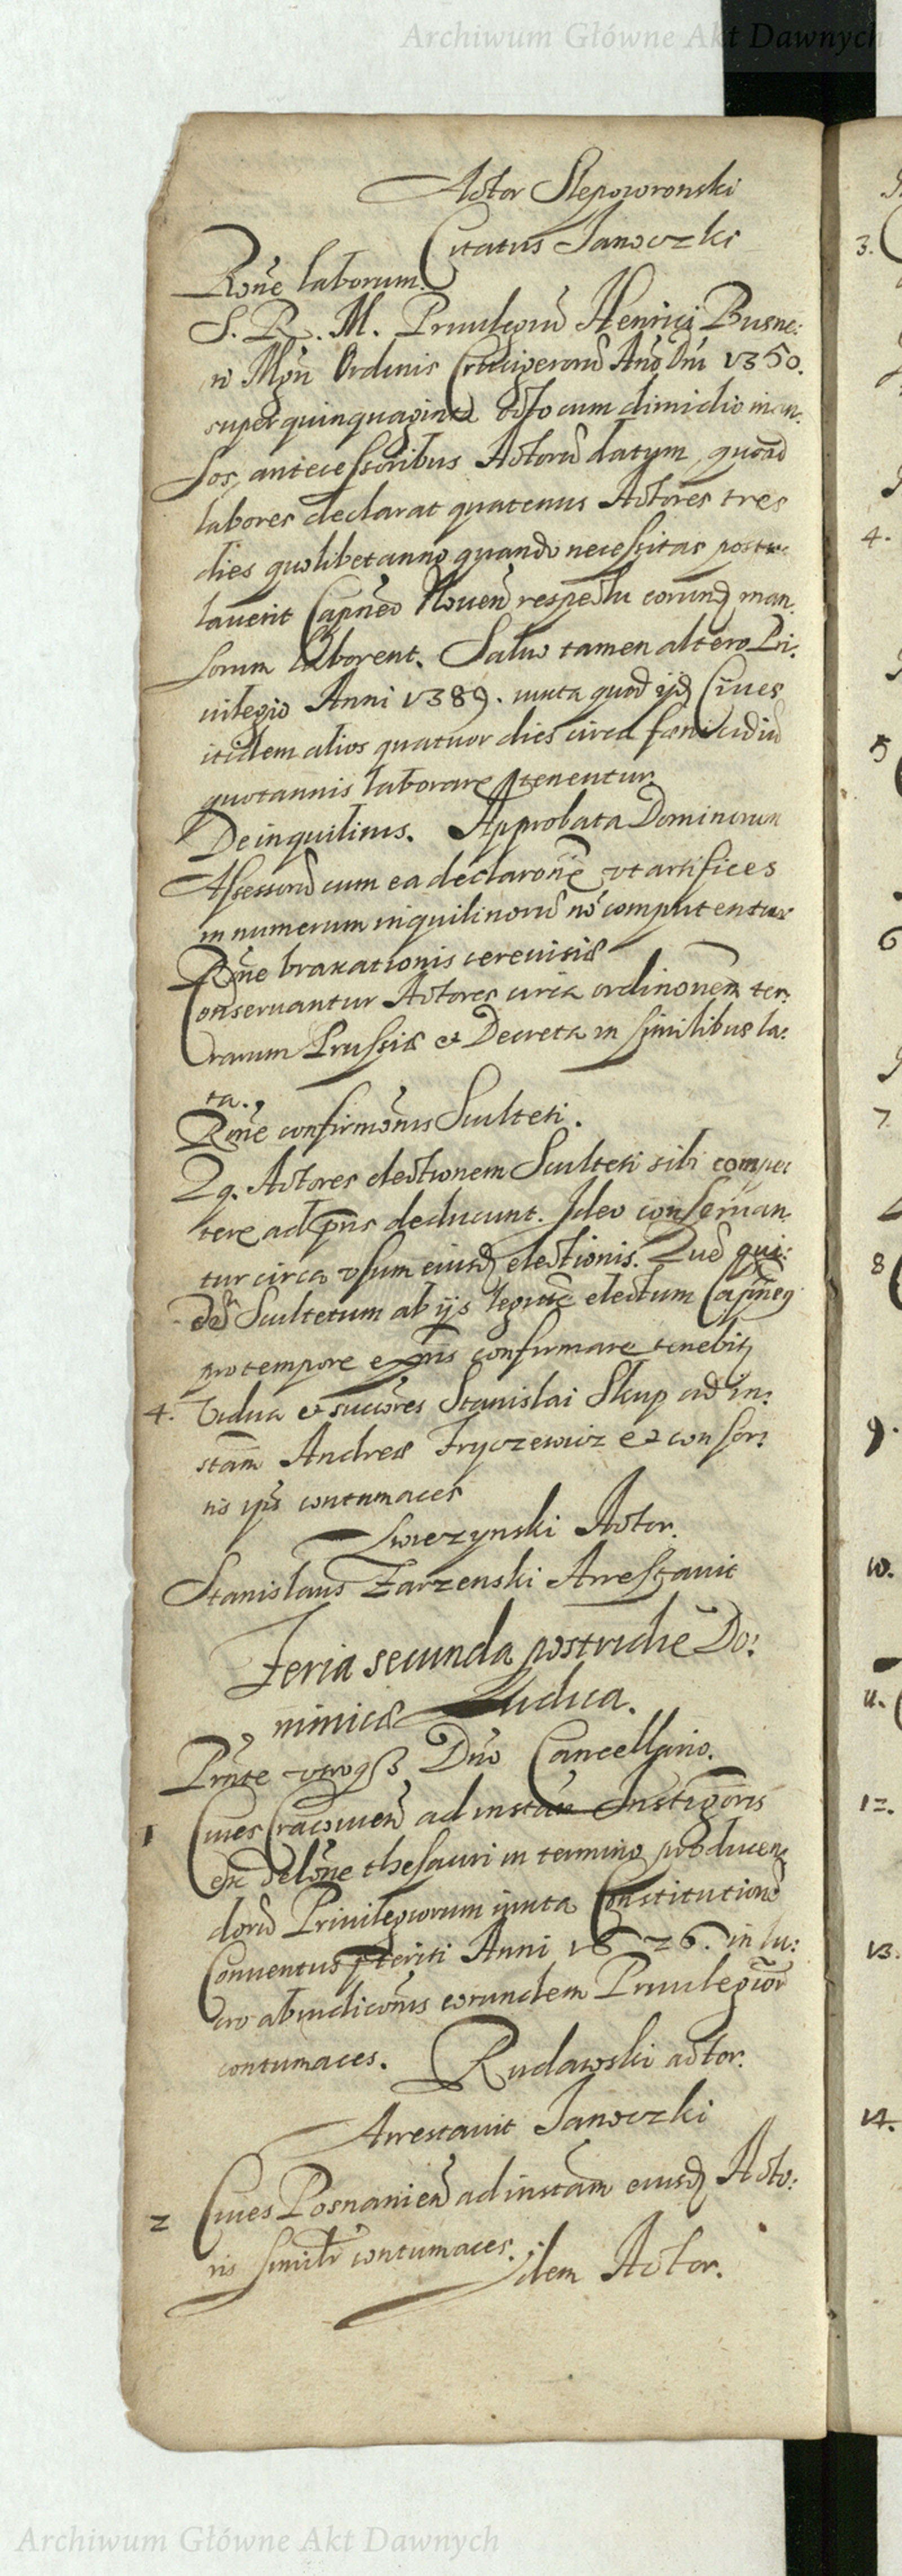 Archiwum Główne Akt Dawnych
Actor Slepowronski
Citatus Janoczki
Rõne laborum.
S. R. M. Priuilegiũ Henrici Busne:
Mgri Ordinis Crucigerorũ Año Dni 1350.
super quinquaginta octo cum dimidio man:
sos, antecessoribus Actorũ datum, quoad
labores declarat quatenus Actores tres
dies quolibet anno quando necessitas postu:
lauerit Capneo Nouen respectu eorund man:
sorum laborent. Saluo tamen altero Pri:
uilegio Anni 1389. iuxta quod ijd Ciues
itidem alios quatuor dies circa fœnicidiũ
quotannis laborare tenentur.
De inquilinis. Approbata Dominorum
Assessorũ cum ea declarone vt artifices
in numerum inquilinorũ nõ computentur
Rõne braxationis cereuisiæ
Conseruantur Actores circa ordinonem ter:
rarum Prussiæ et Decreta in similibus la:
ta.
Rõne confirmonis Sculteti.
Zq. Actores electionem Sculteti sibi compe
tere ad pns deducunt. Ideo conseruan
tur circa vsum eiusd electionis. Que qui:
dẽ Scultetum ab ijs legitie electum Capneus
pro tempore expns confirmare tenebit
4. Vidua et succores Stanislai Skup ad in:
stam Andreæ Fryczewicz et consor:
tis ipis contumaces
Zwierzynski Actor.
Stanislaus Zarzenski Arrestauit
Feria secunda postridie Do:
minicæ Iudica.
Pnte vtroqз Dno Cancellario.
1 Ciues Cracouien ad instan Instigoris
ex delone thesauri in termino producen
dorũ Priuilegiorum iuxta Constitutionẽ
Conuentus pteriti Anni 1626. in lu:
cro abiudiconis eorundem Priuilegior
contumaces. Rudawski actor.
Arrestauit Janoczki
2 Ciues Posnanien ad instam eiusd Acto:
ris similr contumaces.
idem Actor.
3.
4.
5
6
7.
8
9.
10.
11.
12.
13.
14.
Archiwum Główne Akt Dawnych